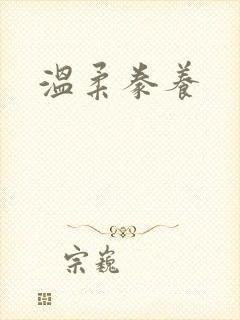 温柔豢养
宗巍